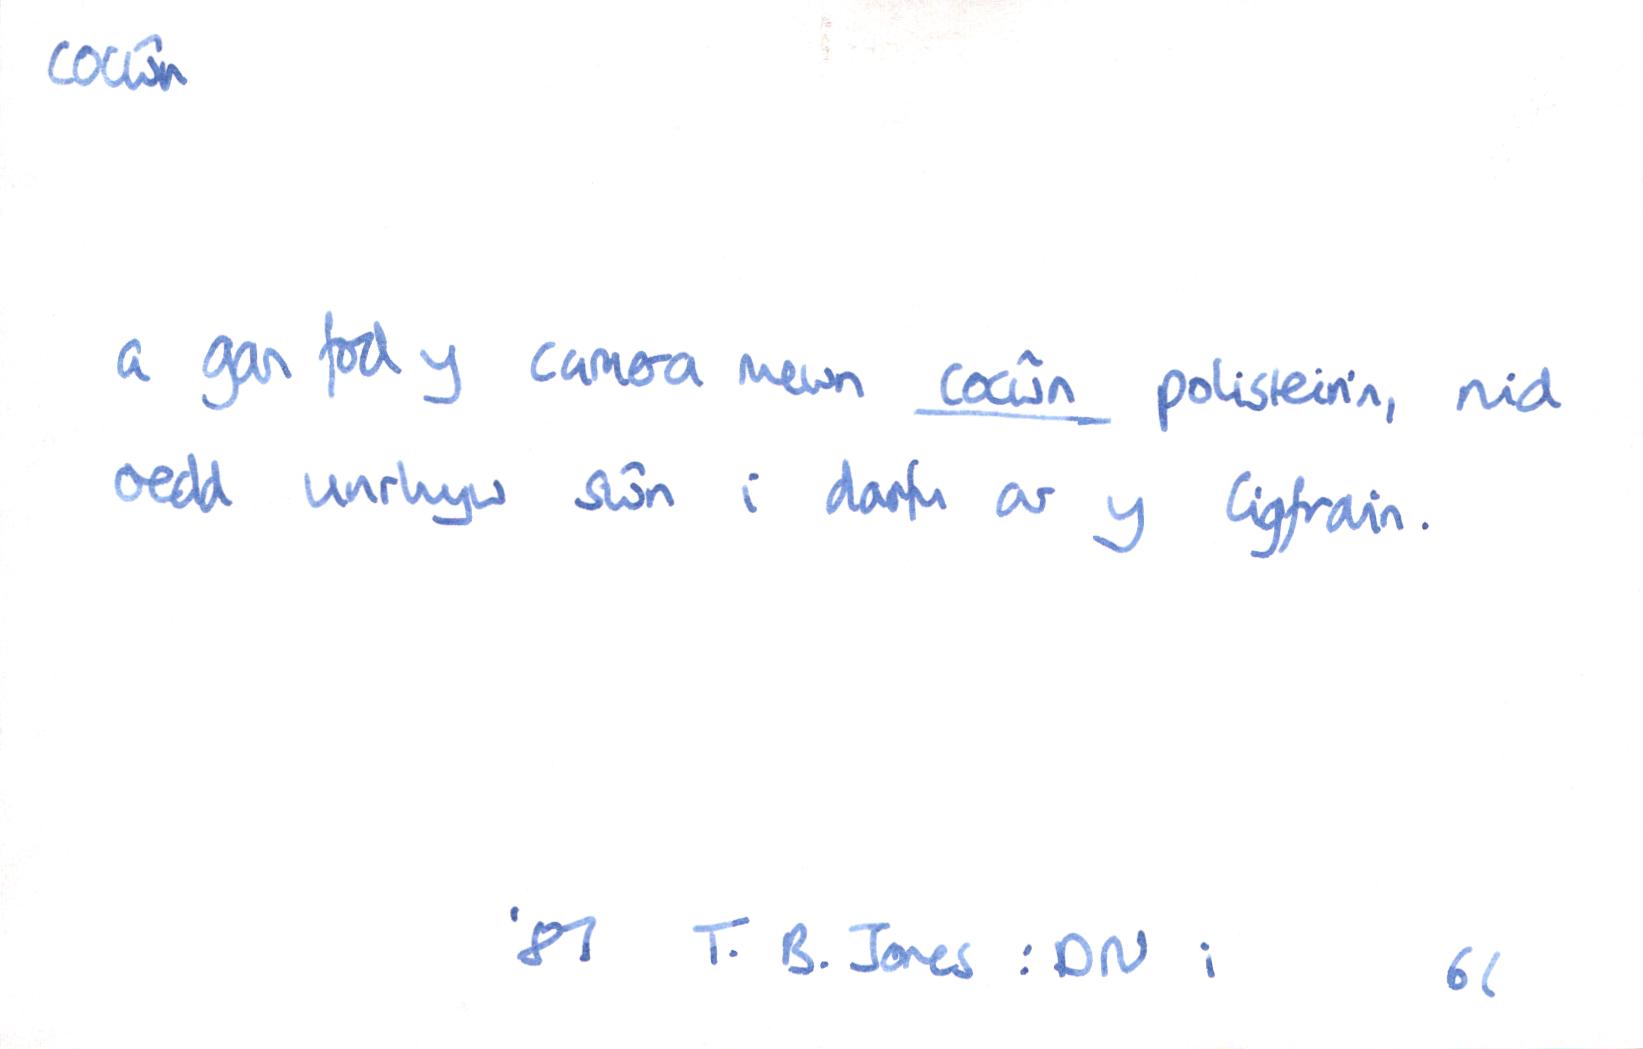 cocŵn
a gan fod y camera mewn cocŵn polisteirin, nid
oedd unrhyw sŵn i darfu ar y cigfrain.
'87 T. B. Jones : DN i 61